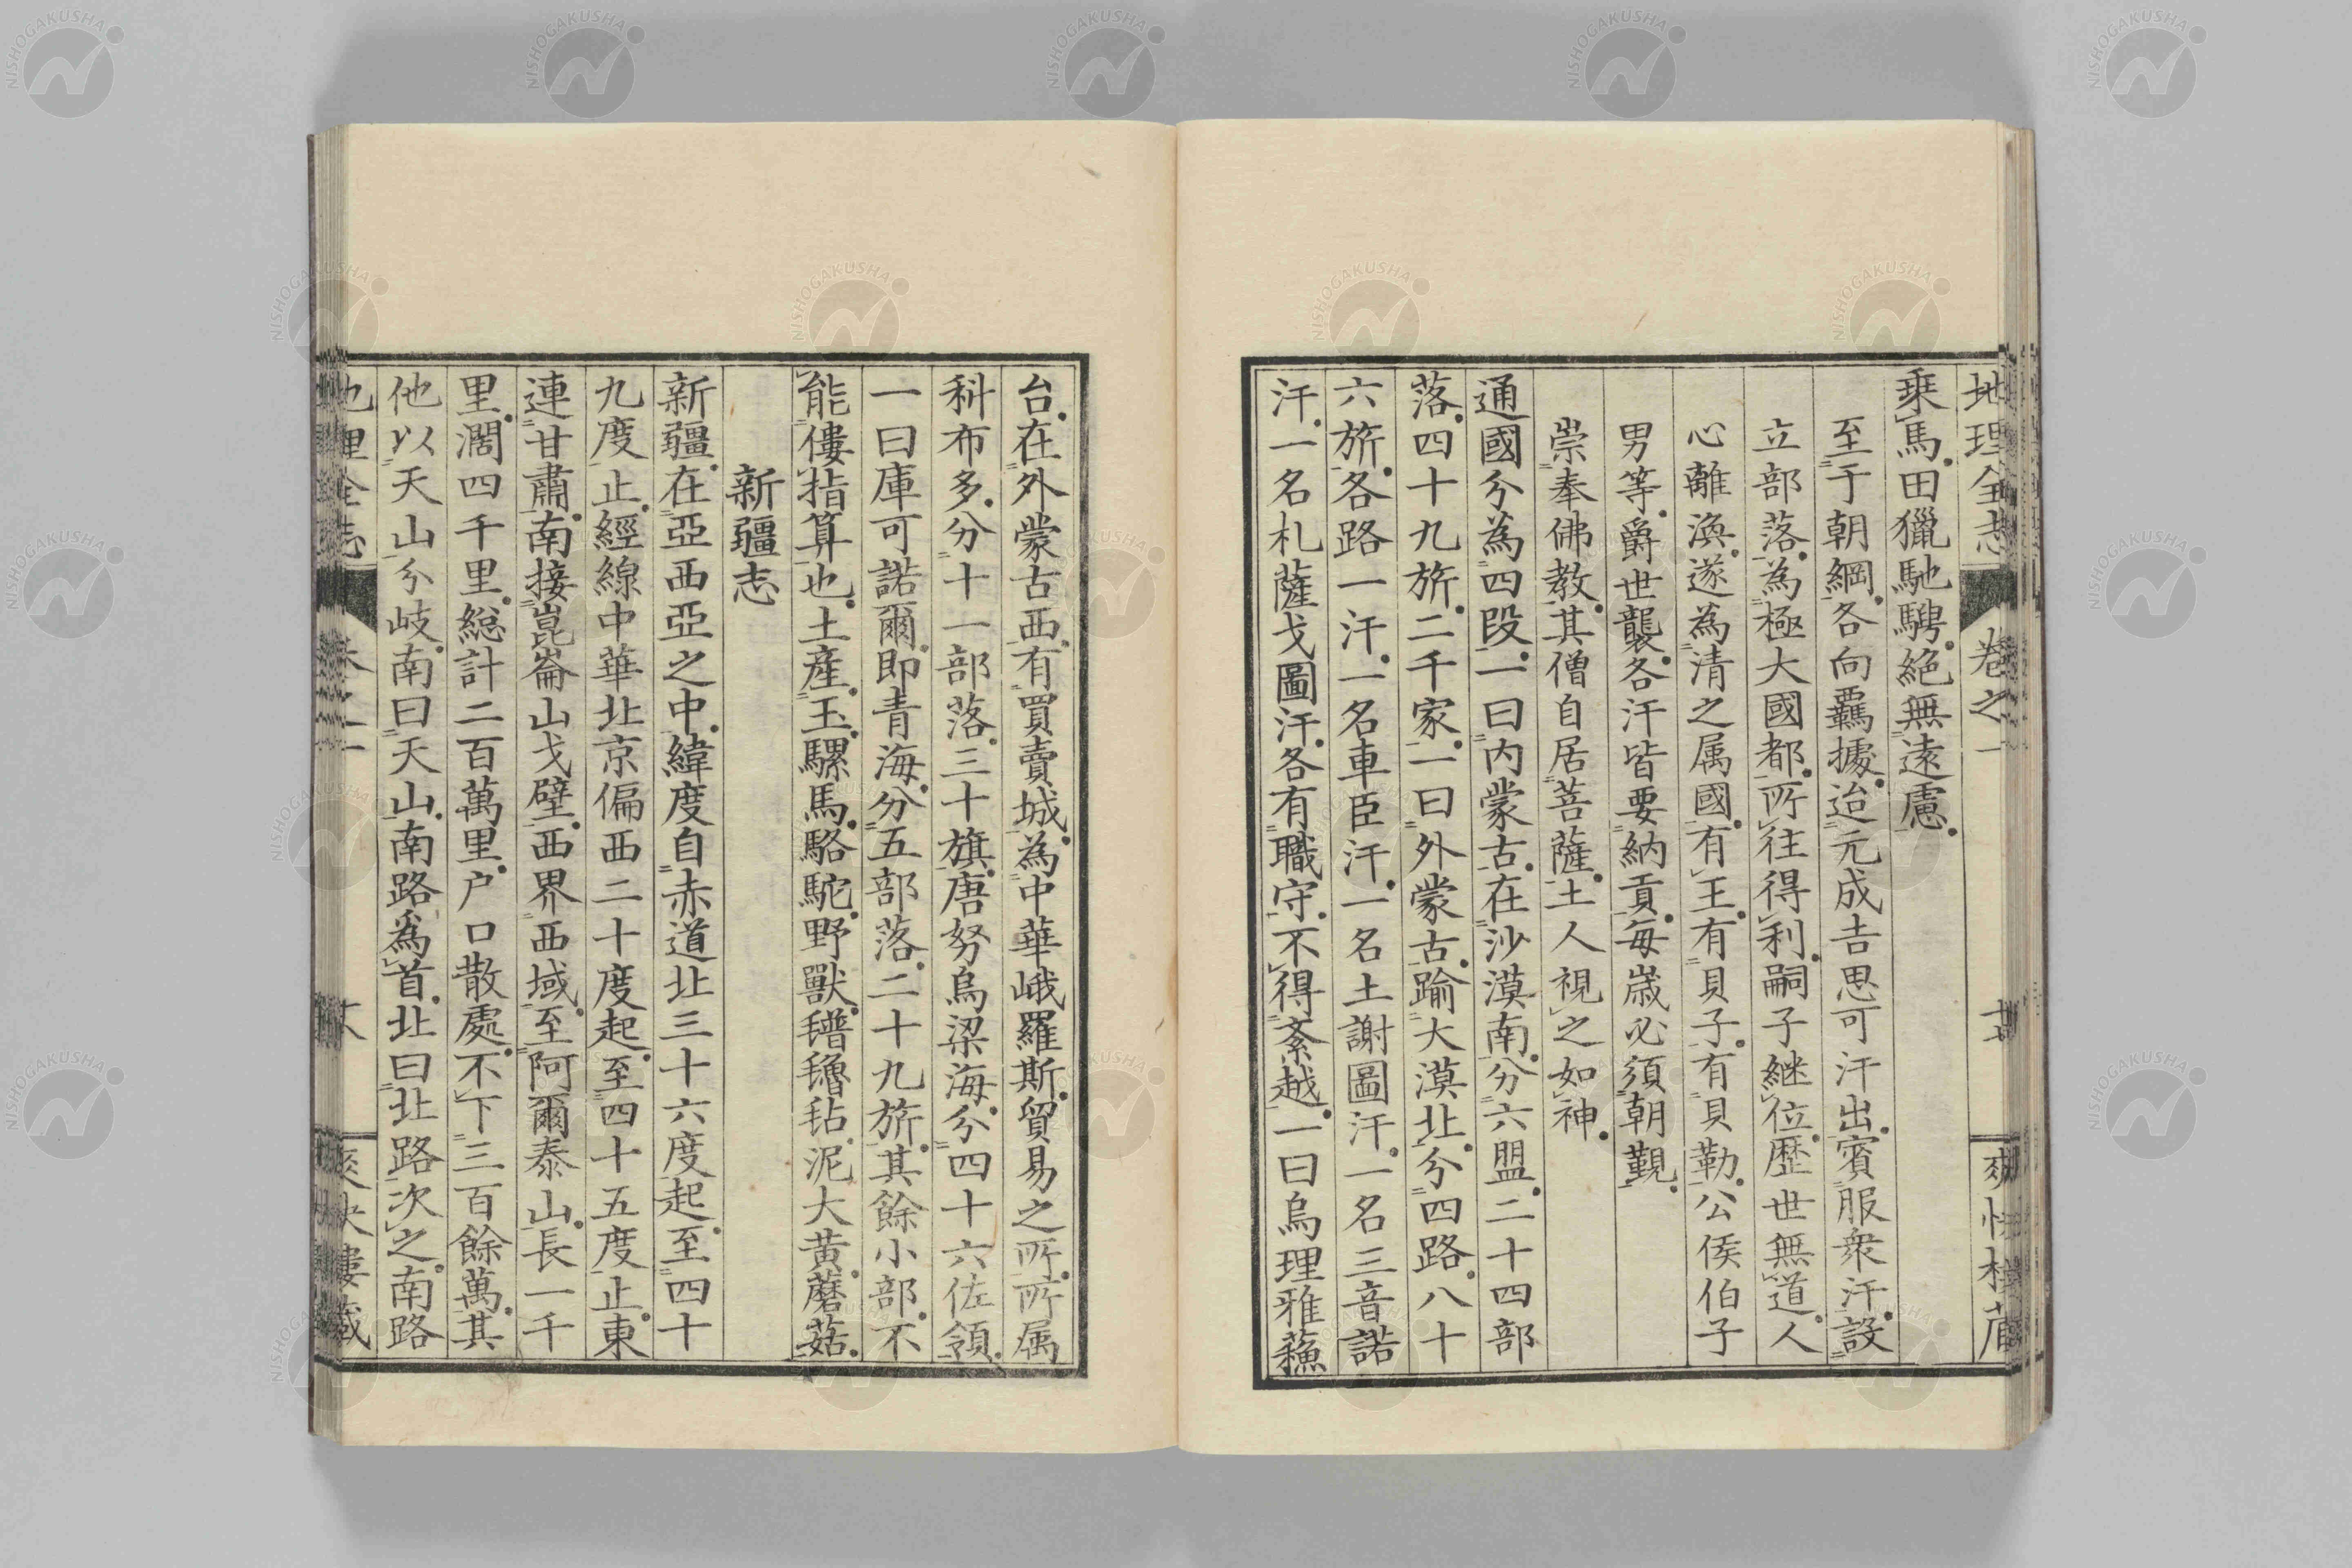 地理全志 卷之一
乘馬田獵馳騁絕無遠慮
至于朝綱各向羈據迨元成吉思可汗出賓服衆汗設
立部落為極大國都所往得利嗣子継位歷世無道人
心離渙遂為清之属國有王有貝子有貝勒公侯伯子
男等爵世襲各汗皆要納貢每歳必須朝覲
崇奉佛教其僧自居菩薩土人視之如神
通國分為四段一曰内蒙古在沙漠南分六盟二十四部
落四十九旂二千家一曰外蒙古踰大漠北分四路八十
六旂各路一汗一名車臣汗一名土謝圖汗一名三音諾
汗一名札薩戈圖汗各有職守不得紊越一曰烏理雅蘓
台在外蒙古西有買賣城為中華峨羅斯貿易之所所属
科布多分十一部落三十旗唐努烏梁海分四十六佐領
一曰庫可諾爾即青海分五部落二十九旂其餘小部不
能僂指算也土產玉騾馬駱駝野獸氆氇毡泥大黃蘑菇
新疆志
新疆在亞西亞之中緯度自赤道北三十六度起至四十
九度止經線中華北京偏西二十度起至四十五度止東
連甘肅南接崑崙山戈壁西界西域至阿爾泰山長一千
里濶四千里総計二百萬里户口散處不下三百餘萬其
他以天山分岐南曰天山南路為首北曰北路次之南路